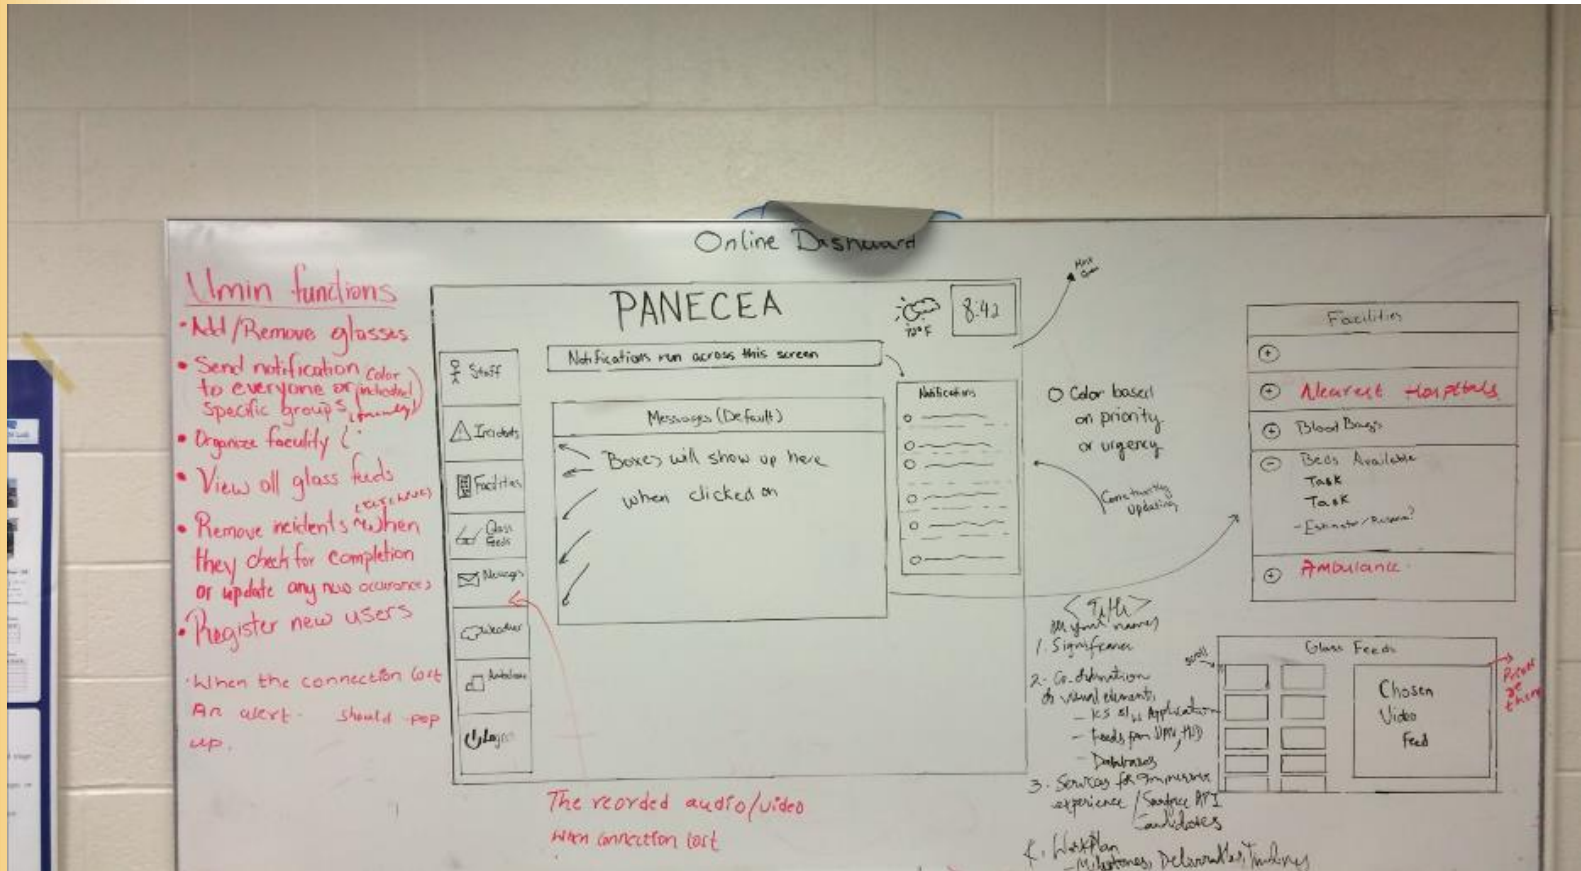 Online Dashboard
Admin functions
• Add/Remove glasses
• Send notification
to everyone or
specific groups
color
included
• Organize facility (
• View all glass feeds
• Remove incidents when
they check for completion
or update any new occurances
• Register new users
• When the connection lost
An alert. should pop
up.
PANECEA
72°F
8:42
Notifications run across this screen
Staff
Incidents
Facilities
Glass
feeds
Messages
Weather
Ambulance
Logout
Messages (Default)
Boxes will show up here
when clicked on
Notifications
The reorded audio/video
when connection lost
Color based
on priority
or urgency
Constantly
Updating
Facilities
Nearest Hospitals
Blood Bags
Beds Available
Task
Task
Ambulance.
<Title>
names
1. Significance
2. Co-ordination
of visual elements
Application
- Feeds from
- Databases
3. Services for immersive
experience / Surface API
Candidates
4. WorkPlan
- Milestones, Deliverables, Timelines
Glass Feeds
scroll
Chosen
Video
Feed